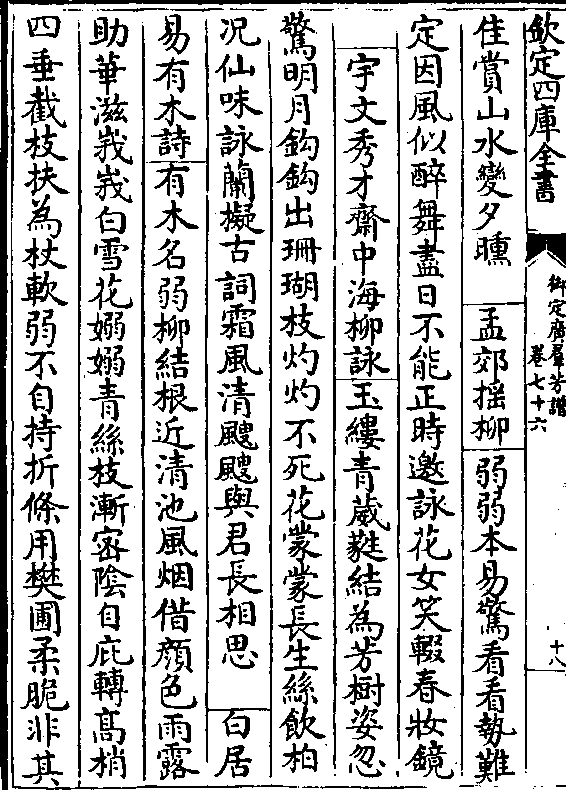 欽定四庫全書
御定廣羣芳譜
卷七十六
十八
佳賞山水變夕曛　孟郊搖柳　弱弱本易驚看看勢難
定因風似醉舞盡日不能正時邀詠花女笑輟春妝鏡
宇文秀才齋中海柳詠　玉縷青葳蕤結為芳樹姿忽
驚明月鈎鈎出珊瑚枝灼灼不死花蒙蒙長生絲飲柏
況仙味詠蘭擬古詞霜風清颼颼與君長相思　白居
易有木詩　有木名弱柳結根近清池風烟借顏色雨露
助華滋峩峩白雪花嫋嫋青絲枝漸密陰自庇轉高梢
四垂截枝扶為杖軟弱不自持折條用樊圃柔脆非其